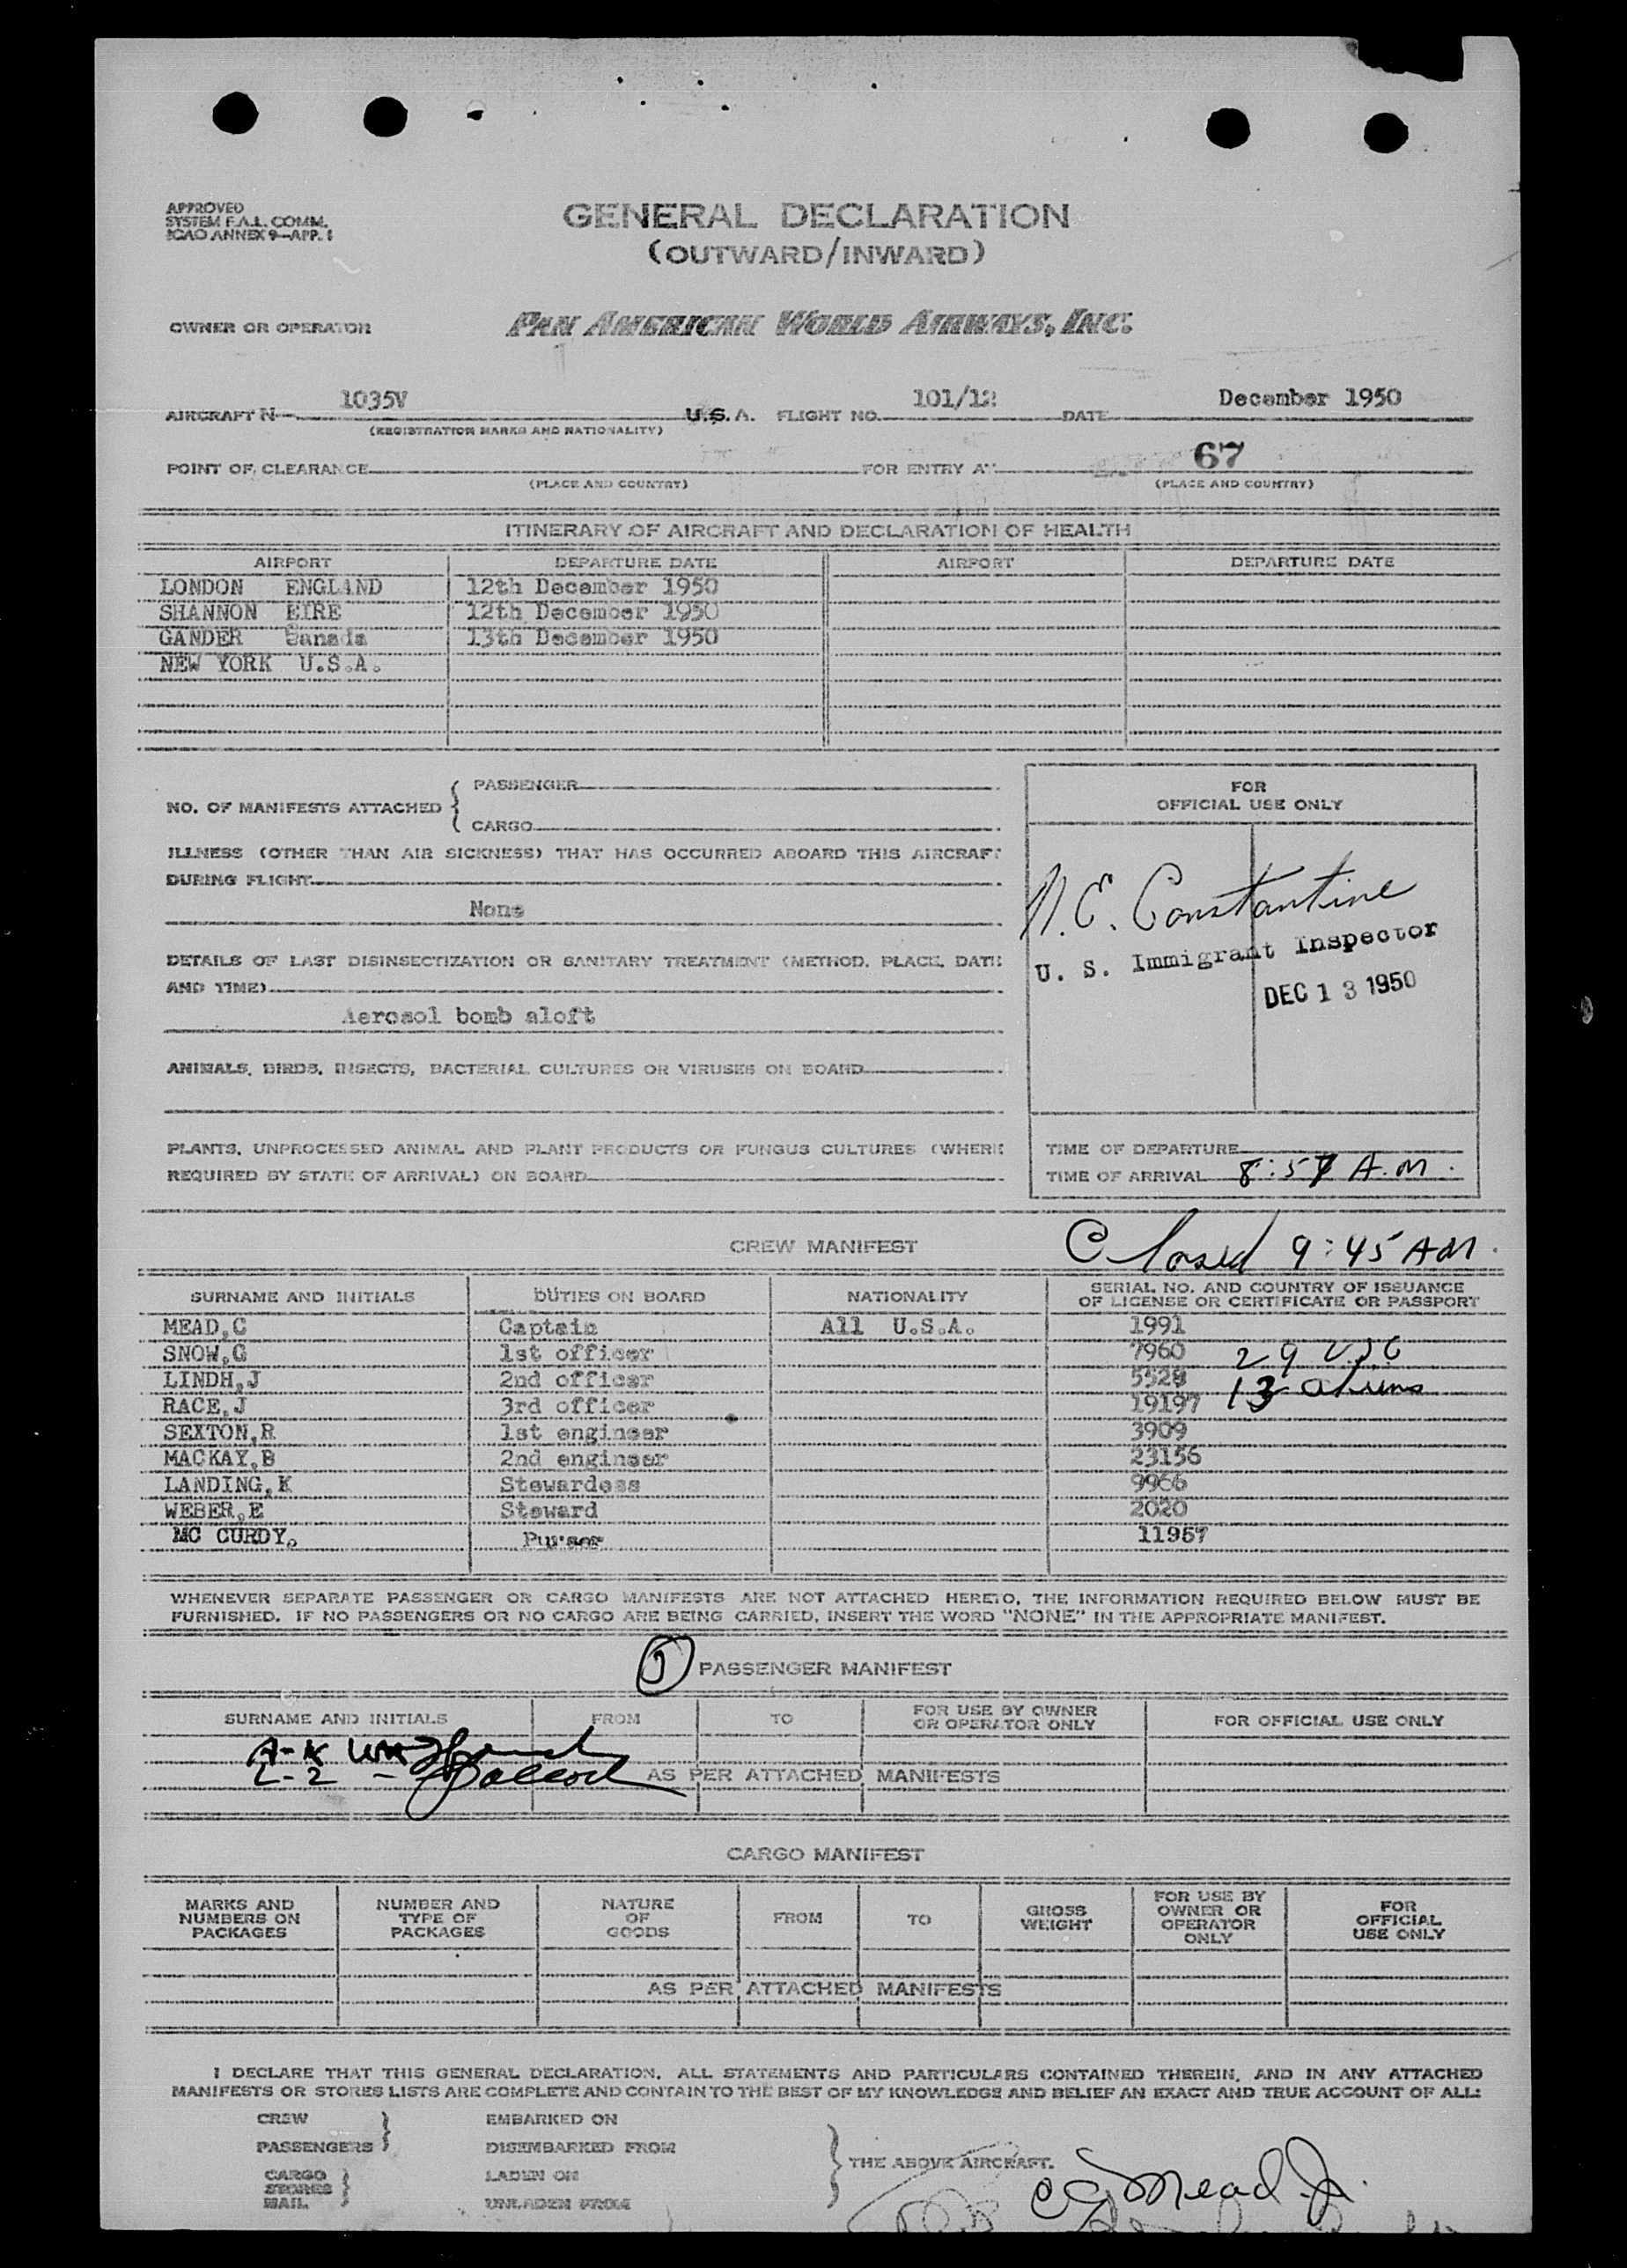 APPROVED
SYSTEM F.A.L. COMM.
ICAO ANNEX 9—APP. 1
GENERAL DECLARATION
(OUTWARD/INWARD)
OWNER OR OPERATOR PAN AMERICAN WORLD AIRWAYS, INC.
AIRCRAFT N— 1035V U.S.A. FLIGHT NO. 101/12 DATE December 1950
(REGISTRATION MARKS AND NATIONALITY)
POINT OF CLEARANCE FOR ENTRY AT 67
(PLACE AND COUNTRY) (PLACE AND COUNTRY)
ITINERARY OF AIRCRAFT AND DECLARATION OF HEALTH
AIRPORT DEPARTURE DATE AIRPORT DEPARTURE DATE
LONDON ENGLAND 12th December 1950
SHANNON EIRE 12th December 1950
GANDER Canada 13th December 1950
NEW YORK U.S.A.
NO. OF MANIFESTS ATTACHED { PASSENGER
CARGO
FOR
OFFICIAL USE ONLY
ILLNESS (OTHER THAN AIR SICKNESS) THAT HAS OCCURRED ABOARD THIS AIRCRAFT
DURING FLIGHT
None
N.E. Constantine
U. S. Immigrant Inspector
DEC 13 1950
DETAILS OF LAST DISINSECTIZATION OR SANITARY TREATMENT (METHOD, PLACE, DATE
AND TIME)
Aerosol bomb aloft
ANIMALS, BIRDS, INSECTS, BACTERIAL CULTURES OR VIRUSES ON BOARD
PLANTS, UNPROCESSED ANIMAL AND PLANT PRODUCTS OR FUNGUS CULTURES (WHERE
REQUIRED BY STATE OF ARRIVAL) ON BOARD
TIME OF DEPARTURE
TIME OF ARRIVAL 8:57 A.M.
Closed 9:45 AM.
CREW MANIFEST
SURNAME AND INITIALS DUTIES ON BOARD NATIONALITY SERIAL NO. AND COUNTRY OF ISSUANCE
OF LICENSE OR CERTIFICATE OR PASSPORT
MEAD,C Captain All U.S.A. 1991
SNOW,G 1st officer 7960 29 USC
LINDH,J 2nd officer 5528 13 aliens
RACE,J 3rd officer 19197
SEXTON,R 1st engineer 3909
MACKAY,B 2nd engineer 23156
LANDING,K Stewardess 9966
WEBER,E Steward 2020
MC CURDY. Purser 11957
WHENEVER SEPARATE PASSENGER OR CARGO MANIFESTS ARE NOT ATTACHED HERETO, THE INFORMATION REQUIRED BELOW MUST BE
FURNISHED. IF NO PASSENGERS OR NO CARGO ARE BEING CARRIED, INSERT THE WORD "NONE" IN THE APPROPRIATE MANIFEST.
PASSENGER MANIFEST
SURNAME AND INITIALS FROM TO FOR USE BY OWNER
OR OPERATOR ONLY FOR OFFICIAL USE ONLY
A-K
L-Z -
AS PER ATTACHED MANIFESTS
CARGO MANIFEST
MARKS AND
NUMBERS ON
PACKAGES
NUMBER AND
TYPE OF
PACKAGES
NATURE
OF
GOODS
FROM
TO
GROSS
WEIGHT
FOR USE BY
OWNER OR
OPERATOR
ONLY
FOR
OFFICIAL
USE ONLY
AS PER ATTACHED MANIFESTS
I DECLARE THAT THIS GENERAL DECLARATION, ALL STATEMENTS AND PARTICULARS CONTAINED THEREIN, AND IN ANY ATTACHED
MANIFESTS OR STORES LISTS ARE COMPLETE AND CONTAIN TO THE BEST OF MY KNOWLEDGE AND BELIEF AN EXACT AND TRUE ACCOUNT OF ALL:
CREW EMBARKED ON
PASSENGERS DISEMBARKED FROM
THE ABOVE AIRCRAFT.
CARGO LADEN ON
STORES
MAIL UNLADEN FROM
CG Mead Jr.